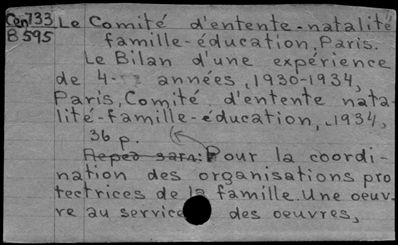 Cen 733 Le Comité d'entente-natalité
B 595 famille-éducation, Paris.
Le Bilan d'une expérience
de 4 années, 1930-1934,
Paris, Comité d'entente nata-
lité-famille-éducation, 1934,
36 p.
Pour la coordi-
nation des organisations pro
tectrices de la famille. Une oeuv-
re au service des oeuvres,